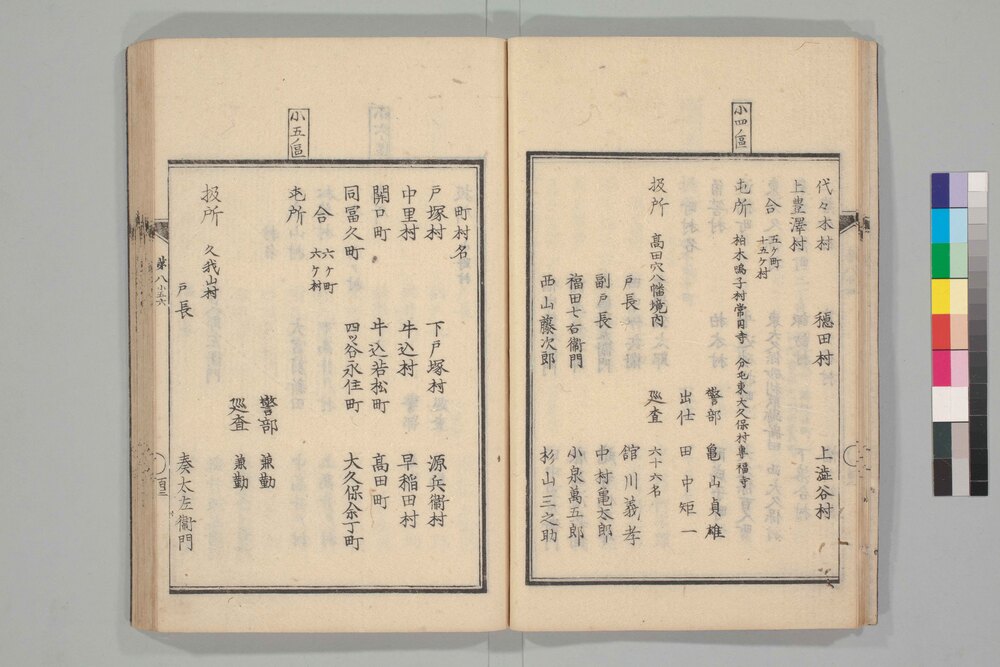 代々木村 穏田村 上澁谷村
上豊澤村
合 五ヶ町
十五ヶ村
小四ノ區
屯所 柏木鳴子村常円寺 分屯東大久保村專福寺
警部 亀山貞雄
出仕 田中矩一
扱所 高田穴八幡境内 巡査 六十六名
戸長 舘川義孝
副戸長 中村亀太郎
福田七右衞門 小泉萬五郎
西山藤次郎 杉山三之助
扱町村名
戸塚村 下戸塚村 源兵衞村
中里村 牛込村 早稲田村
開口町 牛込若松町 高田町
同冨久町 四ッ谷永住町 大久保余丁町
合 六ヶ町
六ヶ村
小五ノ區
屯所 警部 兼勤
巡査 兼勤
扱所 久我山村
戸長 秦太左衞門
第八小五六